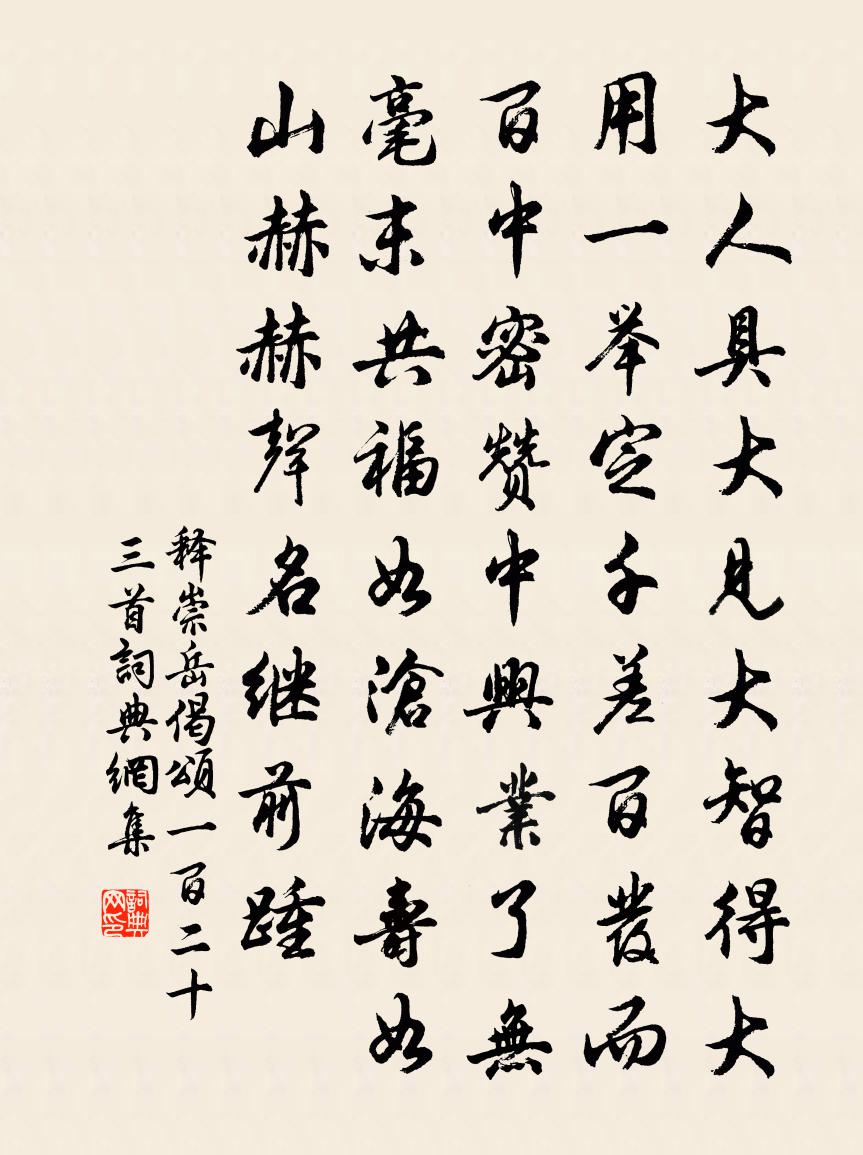 大人具大見大智得大
用一举定千差百發而
百中密赞中興業了無
毫末共福如滄海壽如
山赫赫聲名继前踵
释崇岳偈頌一百二十
三首詞典網集
詞典网印